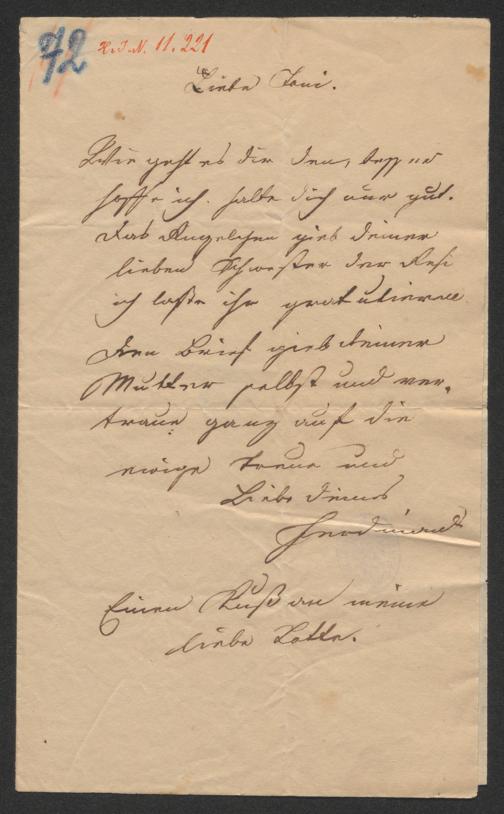 72 H.I.N. 11.221
Liebe Toni.
Wie geht es dir den, besser
hoffe ich. halte dich nur gut.
das Ringelchen gieb deiner
lieben Schwester der Resi
ich laße ihr gratulieren
den Brief gieb deiner
Mutter selbst und ver-
traue ganz auf die
ewige Treue und
Liebe deines
Ferdinand
Einen Kuß an meine
liebe Lotte.